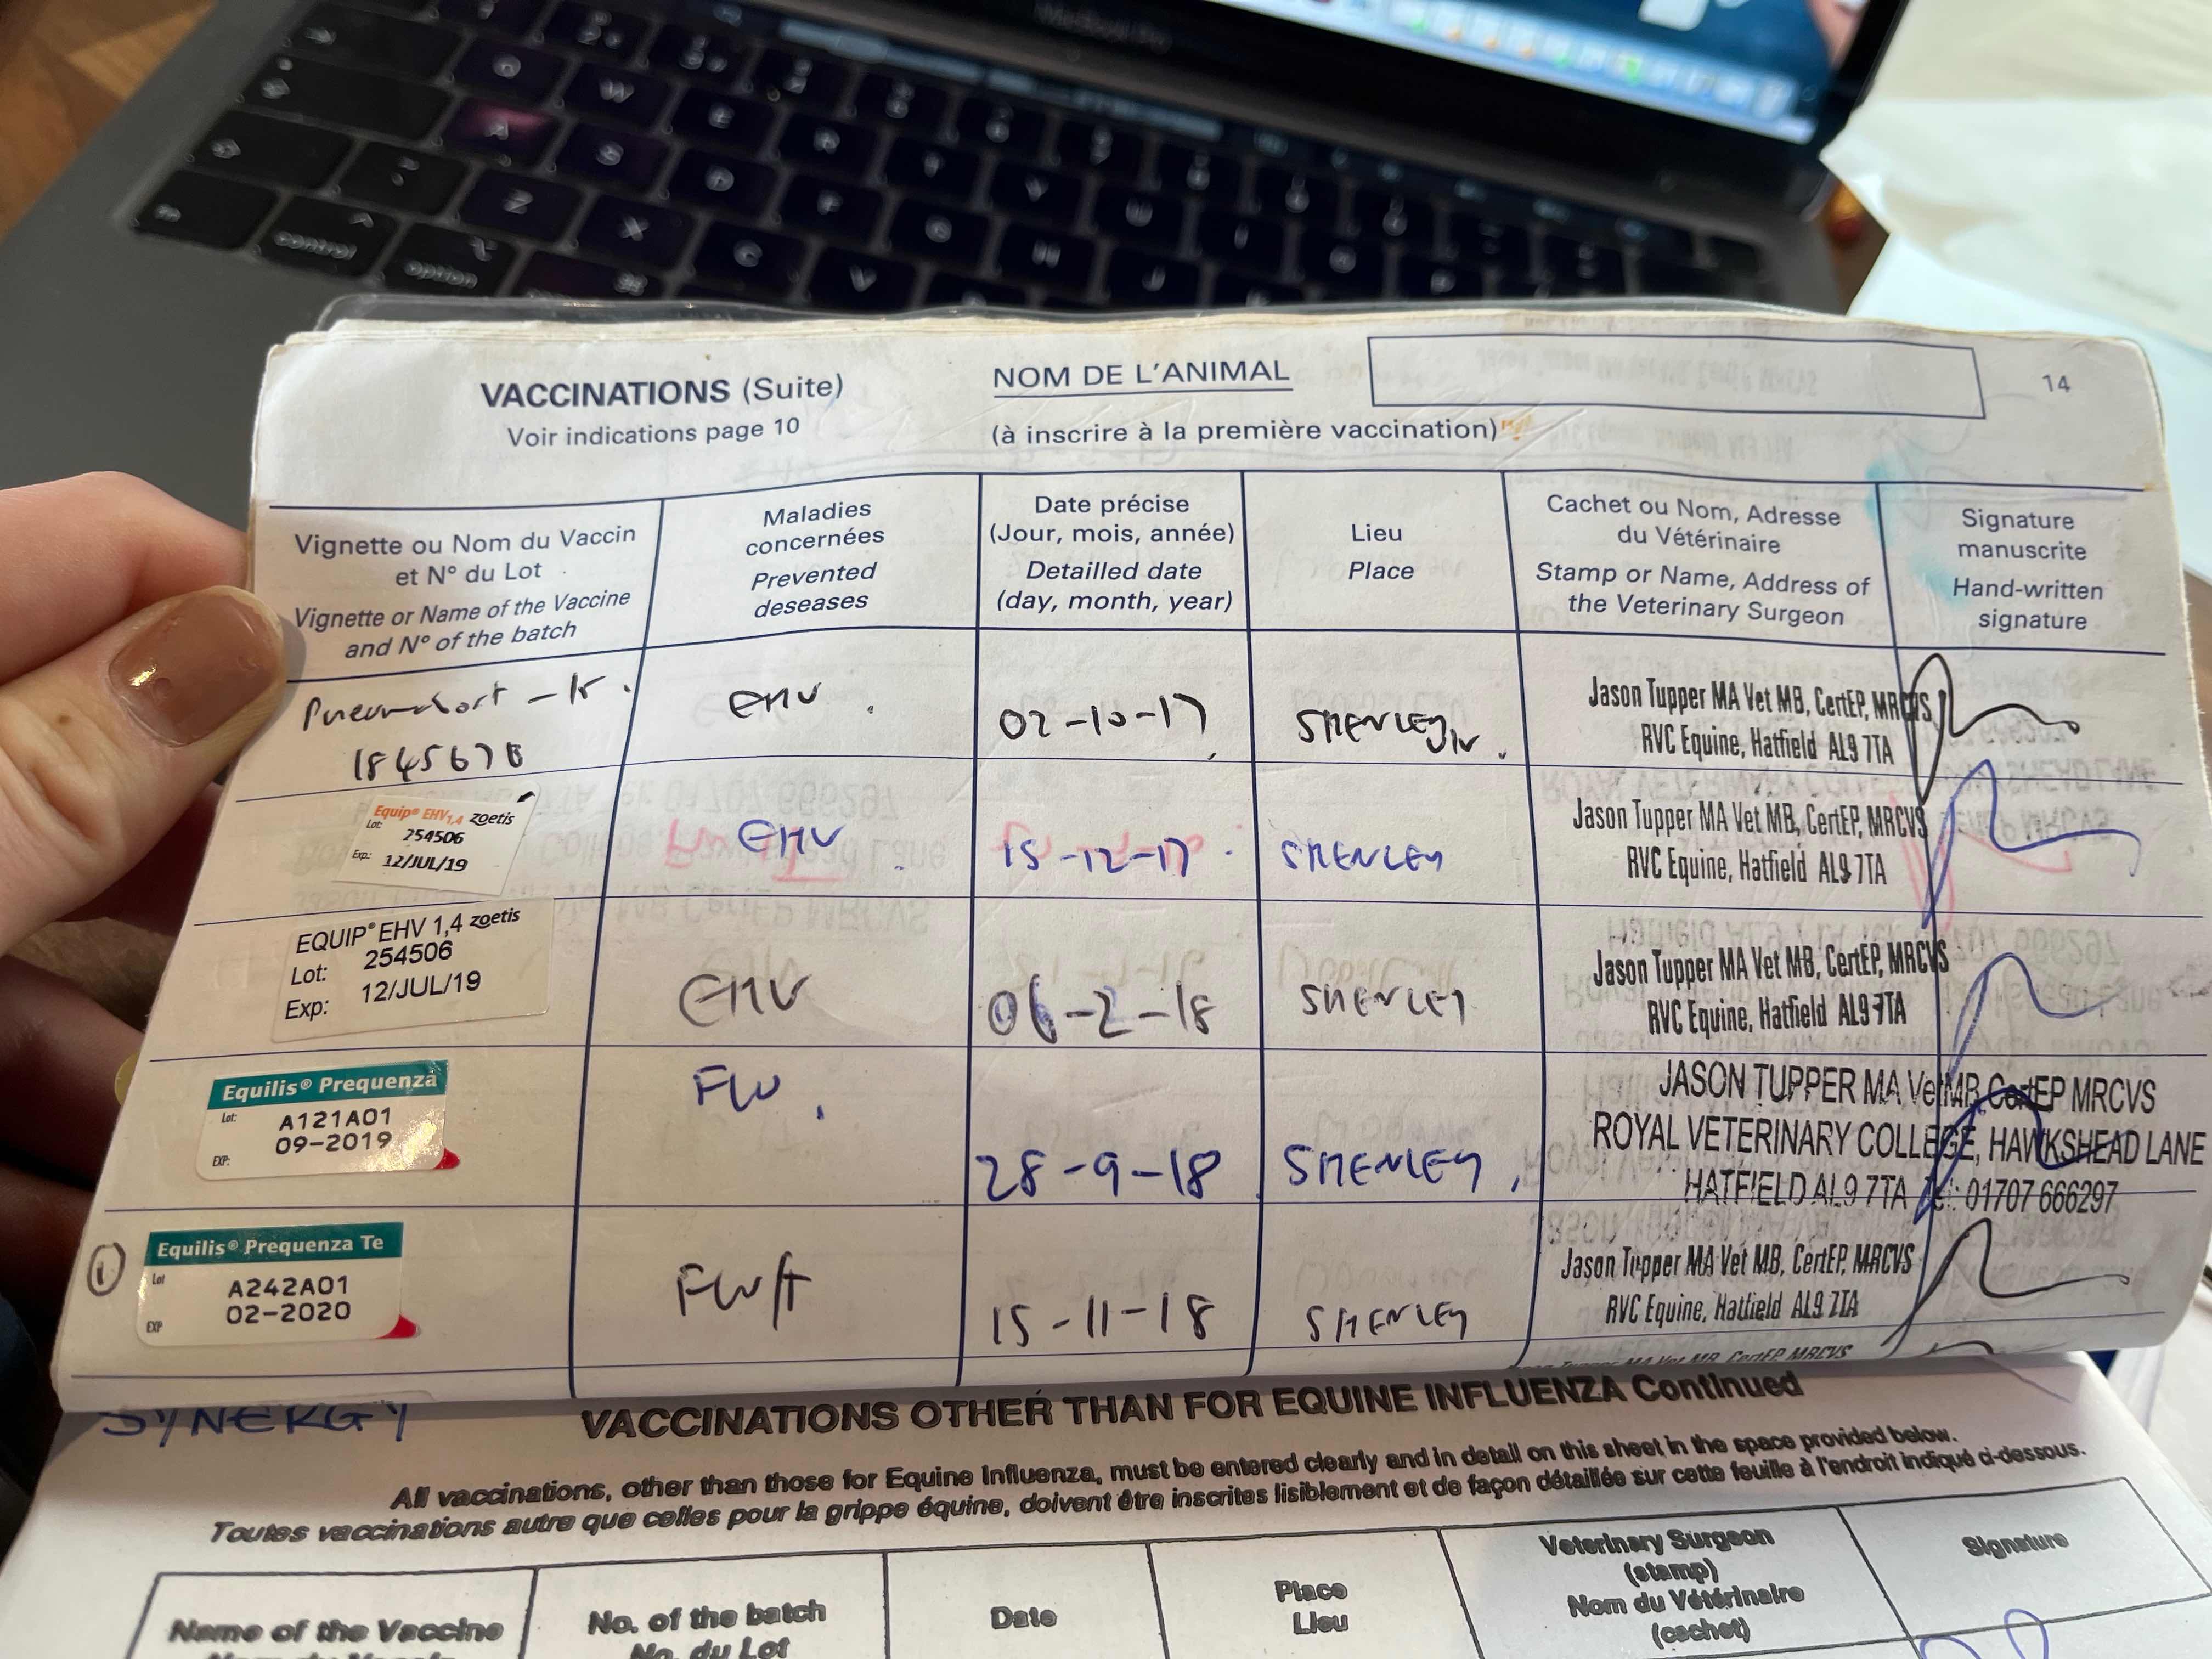 MacBook Pro
Q W E R
A S D F
Z X C V
fn control option
VACCINATIONS (Suite)
Voir indications page 10
NOM DE L'ANIMAL
(à inscrire à la première vaccination)
14
Vignette ou Nom du Vaccin
et N° du Lot
Vignette or Name of the Vaccine
and N° of the batch
Maladies
concernées
Prevented
deseases
Date précise
(Jour, mois, année)
Detailled date
(day, month, year)
Lieu
Place
Cachet ou Nom, Adresse
du Vétérinaire
Stamp or Name, Address of
the Veterinary Surgeon
Signature
manuscrite
Hand-written
signature
EHV
02-10-17
SHENLEY
Jason Tupper MA Vet MB, CertEP, MRCVS
RVC Equine, Hatfield AL9 7TA
Equip® EHV1,4 zoetis
Lot: 254506
Exp: 12/JUL/19
EHV
15-12-17
SHENLEY
Jason Tupper MA Vet MB, CertEP, MRCVS
RVC Equine, Hatfield AL9 7TA
EQUIP® EHV 1,4 zoetis
Lot: 254506
Exp: 12/JUL/19
EHV
06-2-18
SHENLEY
Jason Tupper MA Vet MB, CertEP, MRCVS
RVC Equine, Hatfield AL9 7TA
Equilis® Prequenza
Lot: A121A01
EXP: 09-2019
FLU
28-9-18
SHENLEY
JASON TUPPER MA VetMB CertEP MRCVS
ROYAL VETERINARY COLLEGE, HAWKSHEAD LANE
HATFIELD AL9 7TA Tel: 01707 666297
1
Equilis® Prequenza Te
Lot A242A01
EXP 02-2020
FLU/T
15-11-18
SHENLEY
Jason Tupper MA Vet MB, CertEP, MRCVS
RVC Equine, Hatfield AL9 7TA
Jason Tupper MA Vet MB, CertEP, MRCVS
SYNERGY
VACCINATIONS OTHER THAN FOR EQUINE INFLUENZA Continued
All vaccinations, other than those for Equine Influenza, must be entered clearly and in detail on this sheet in the space provided below.
Toutes vaccinations autre que celles pour la grippe équine, doivent être inscrites lisiblement et de façon détaillée sur cette feuille à l'endroit indiqué ci-dessous.
Name of the Vaccine
No. of the batch
No. du Lot
Date
Place
Lieu
Veterinary Surgeon
(stamp)
Nom du Vétérinaire
(cachet)
Signature